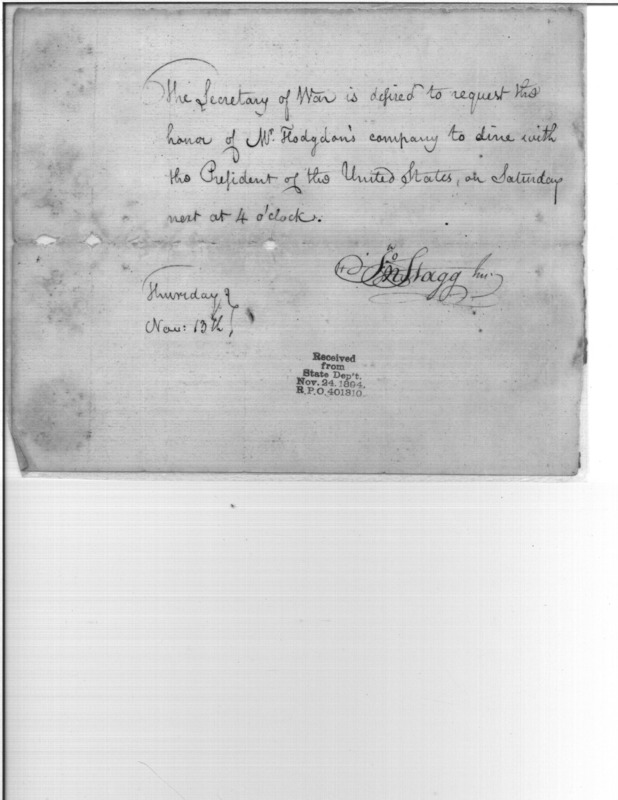 The Secretary of War is desired to request the
honor of Mr. Hodgdon's company to dine with
the President of the United States, on Saturday
next at 4 o'clock.
Jno Stagg Jnr.
Thursday
Nov: 13th
Received
from
State Dep't.
Nov. 24. 1894.
R.P.O. 401810.